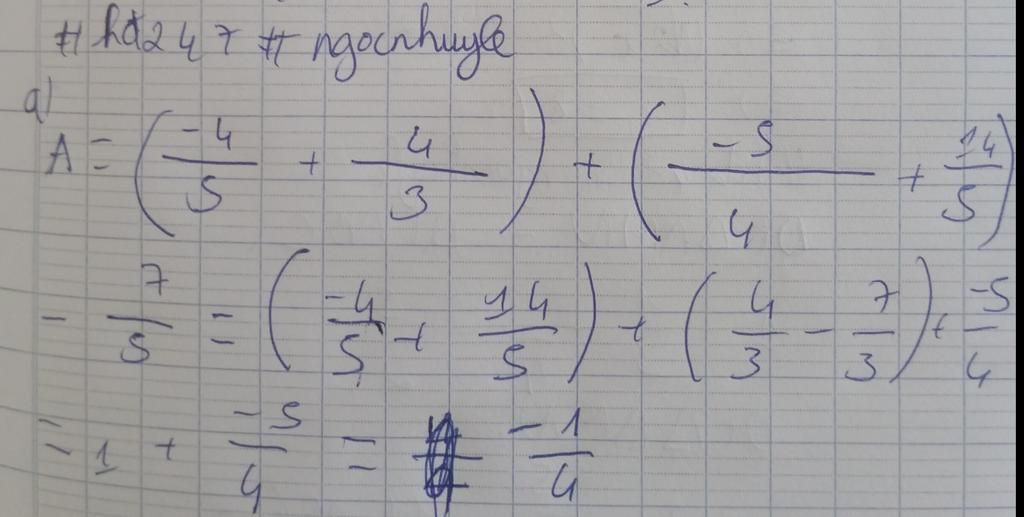 # hd247 # ngocnhuyle
a)
A = (-4/5 + 4/3) + (-5/4 + 14/5)
- 7/5 = (-4/5 + 14/5) + (4/3 - 7/3) + -5/4
= 1 + -5/4 = -1/4